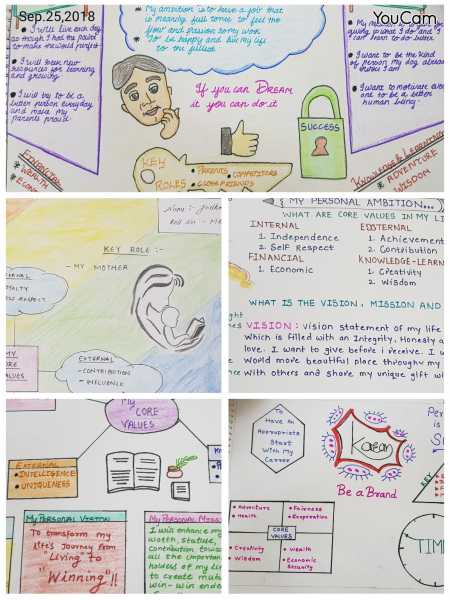 Sep.25,2018
YouCam
My ambition is to have a job that
is meaning full comes to feel the
and passion to my work
To be happy and live my life
to the fullest
I will live each day
to make the world perfect
I will seek new
resources for learning
and growing
I will try to be a
better person everyday
and make my
parents proud
If you can DREAM
it you can do it
I want to be the kind
of person my dog already
thinks I am
I want to motivate
one to be a better
human being
SUCCESS
KEY
ROLES
PARENTS
COMPETITORS
CLOSE FRIENDS
FINANCIAL
WEALTH
Knowledge &
ADVENTURE
WISDOM
KEY ROLE :-
- MY MOTHER
EXTERNAL
- CONTRIBUTION
- INFLUENCE
MY
CORE
VALUES
MY PERSONAL AMBITION...
WHAT ARE CORE VALUES IN MY LI
INTERNAL
1. Independence
2. Self Respect
FINANCIAL
1. Economic
EXTERNAL
1. Achievement
2. Contribution
KNOWLEDGE-LEARN
1. Creativity
2. Wisdom
WHAT IS THE VISION, MISSION AND
VISION : vision statement of my life
which is filled with an Integrity, Honesty a
love. I want to give before i receive. I w
world more beautiful place through my
with others and share my unique gift wi
My
CORE
VALUES
EXTERNAL
INTELLIGENCE
UNIQUENESS
My PERSONAL VISION
To transform my
life's Journey from
"Living" to
"Winning"!!
My PERSONAL MISS
I will enhance my
worth, stature,
contribution towar
all the importan
holders of my li
to create mutu
win-win ende
To
Have An
Appropriate
Start
With My
Career
Karan
Be a Brand
Adventure
Health
Fairness
Cooperation
CORE
VALUES
Creativity
Wisdom
Wealth
Economic
Security
KEY
TIM